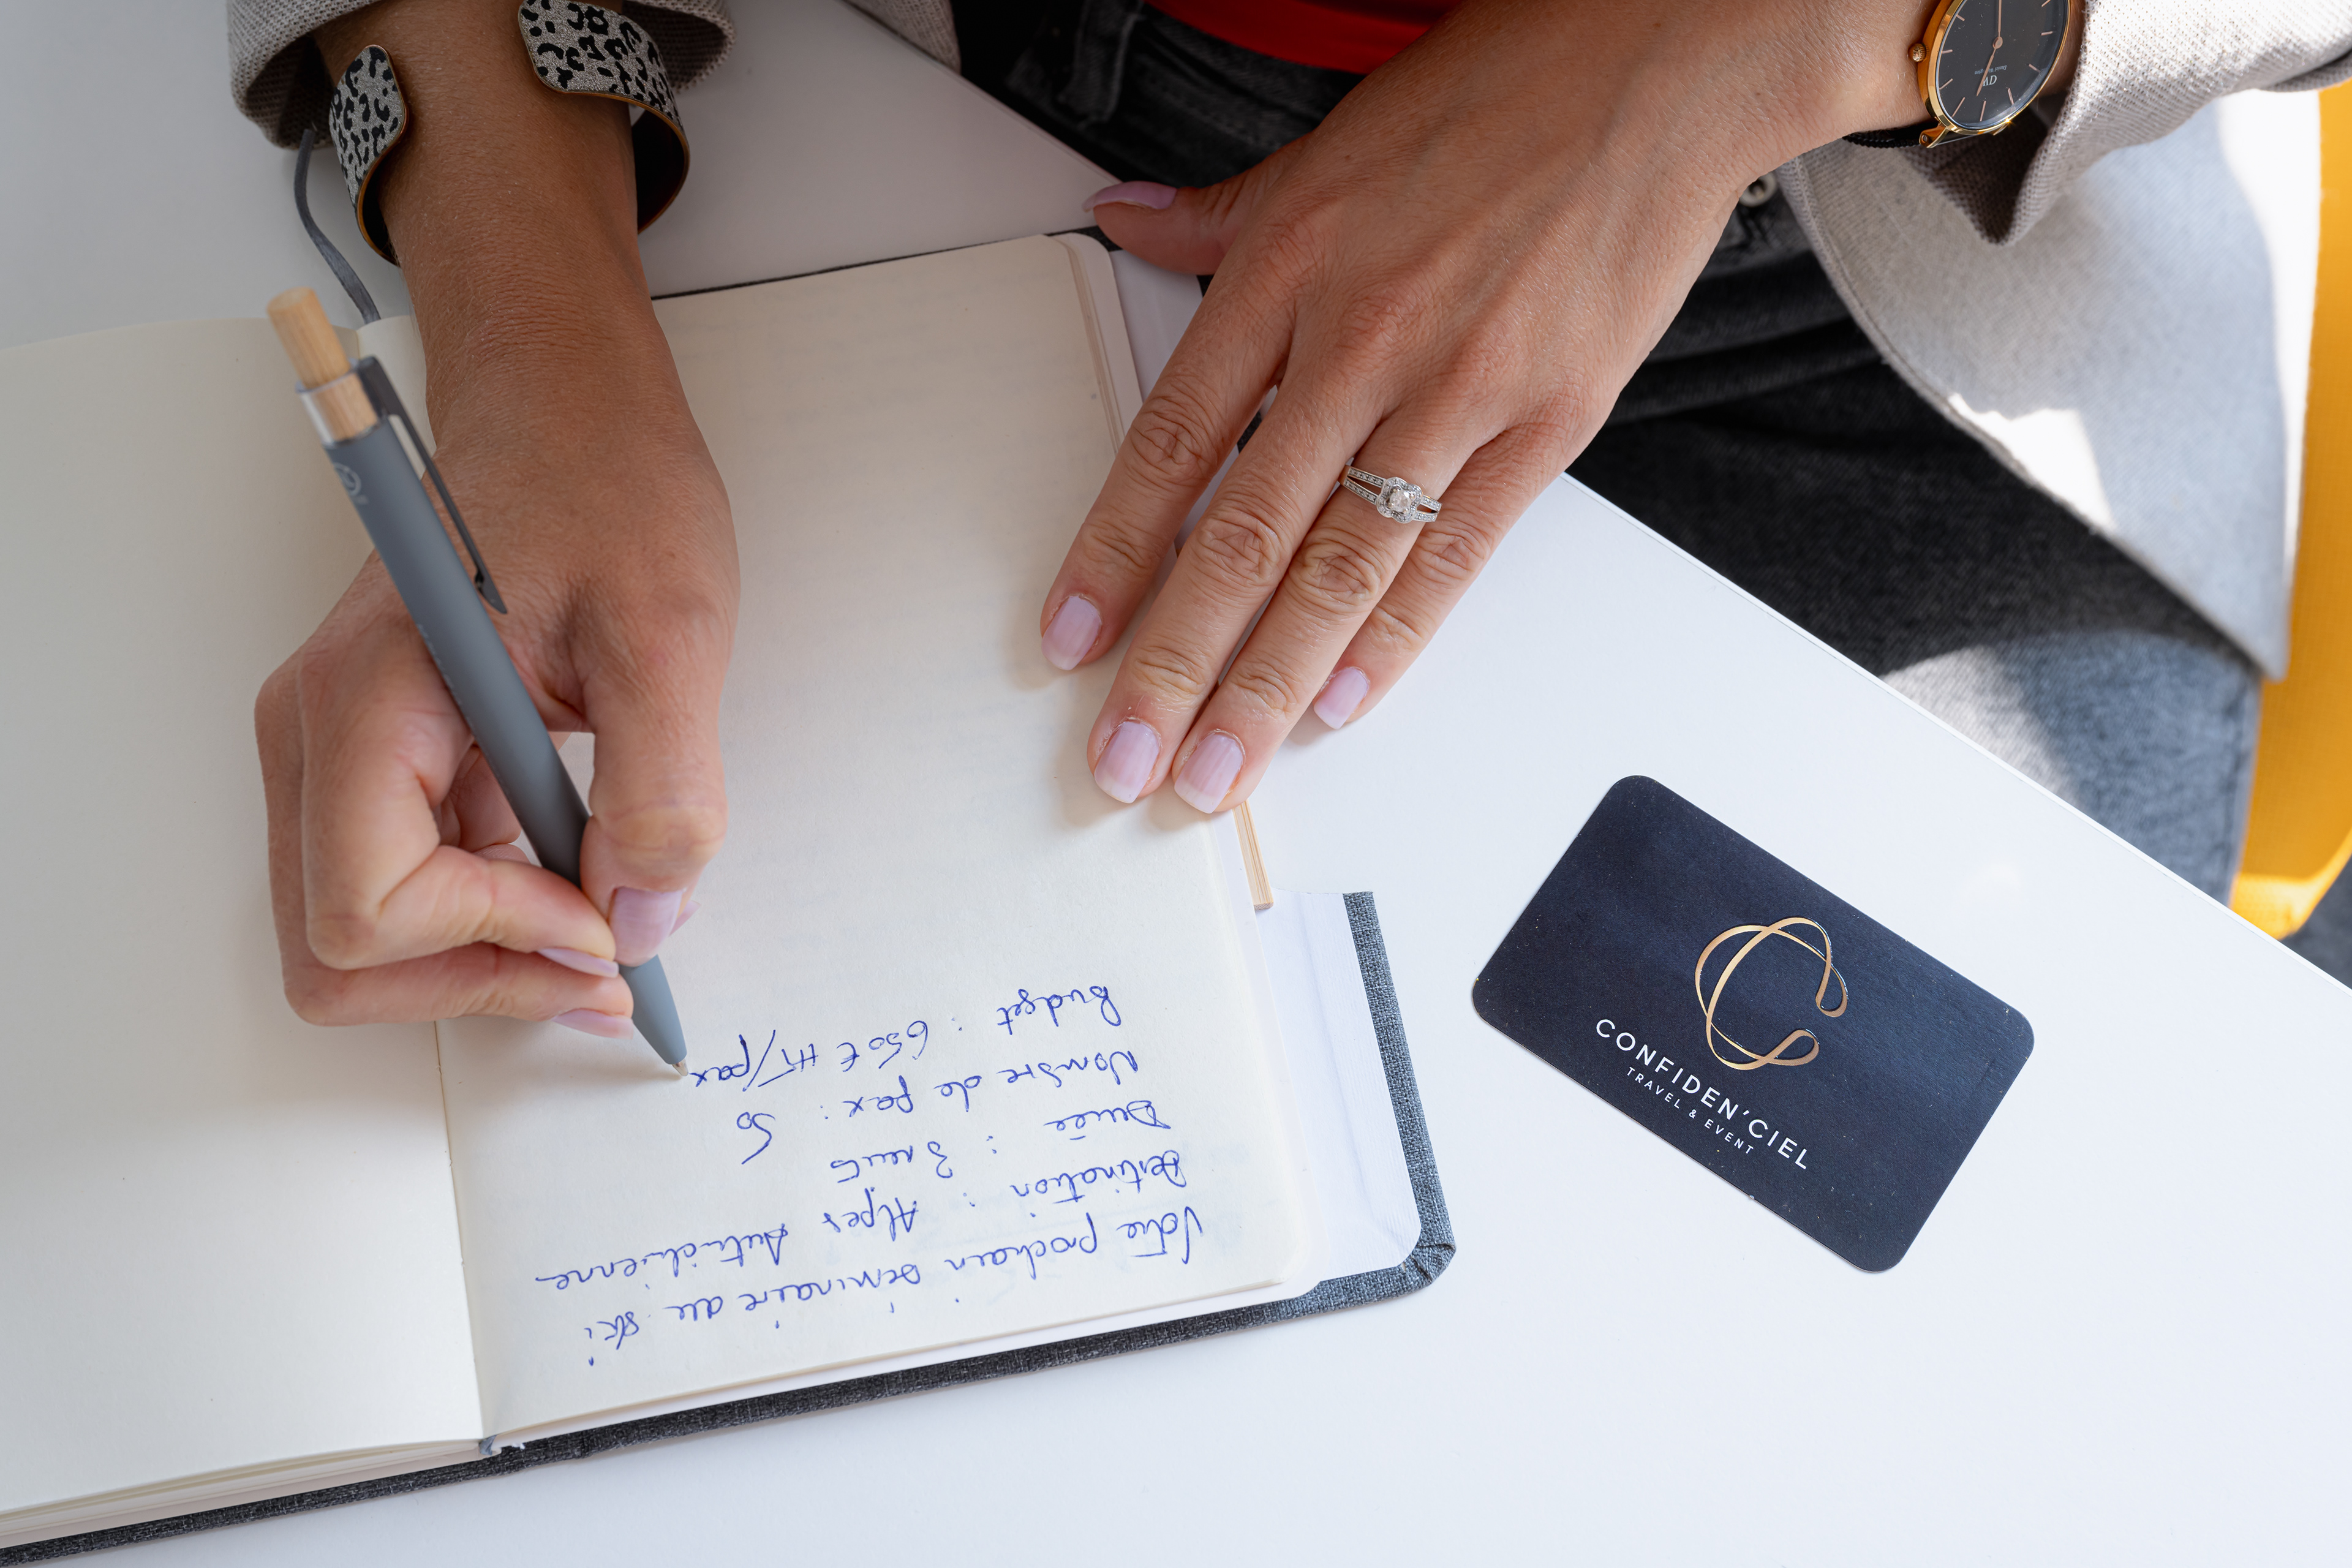 Votre prochain séminaire au ski
Destination : Alpes Autrichienne
Durée : 3 nuits
Nombre de pax : 50
Budget : 650€ HT/pax
CONFIDEN'CIEL
TRAVEL & EVENT